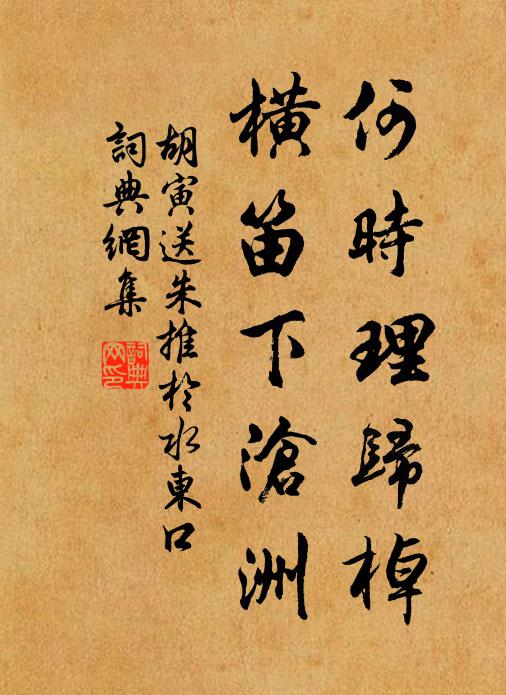 何時理歸棹
橫笛下滄洲
胡寅送朱推於水東口
詞典網集
詞典網印